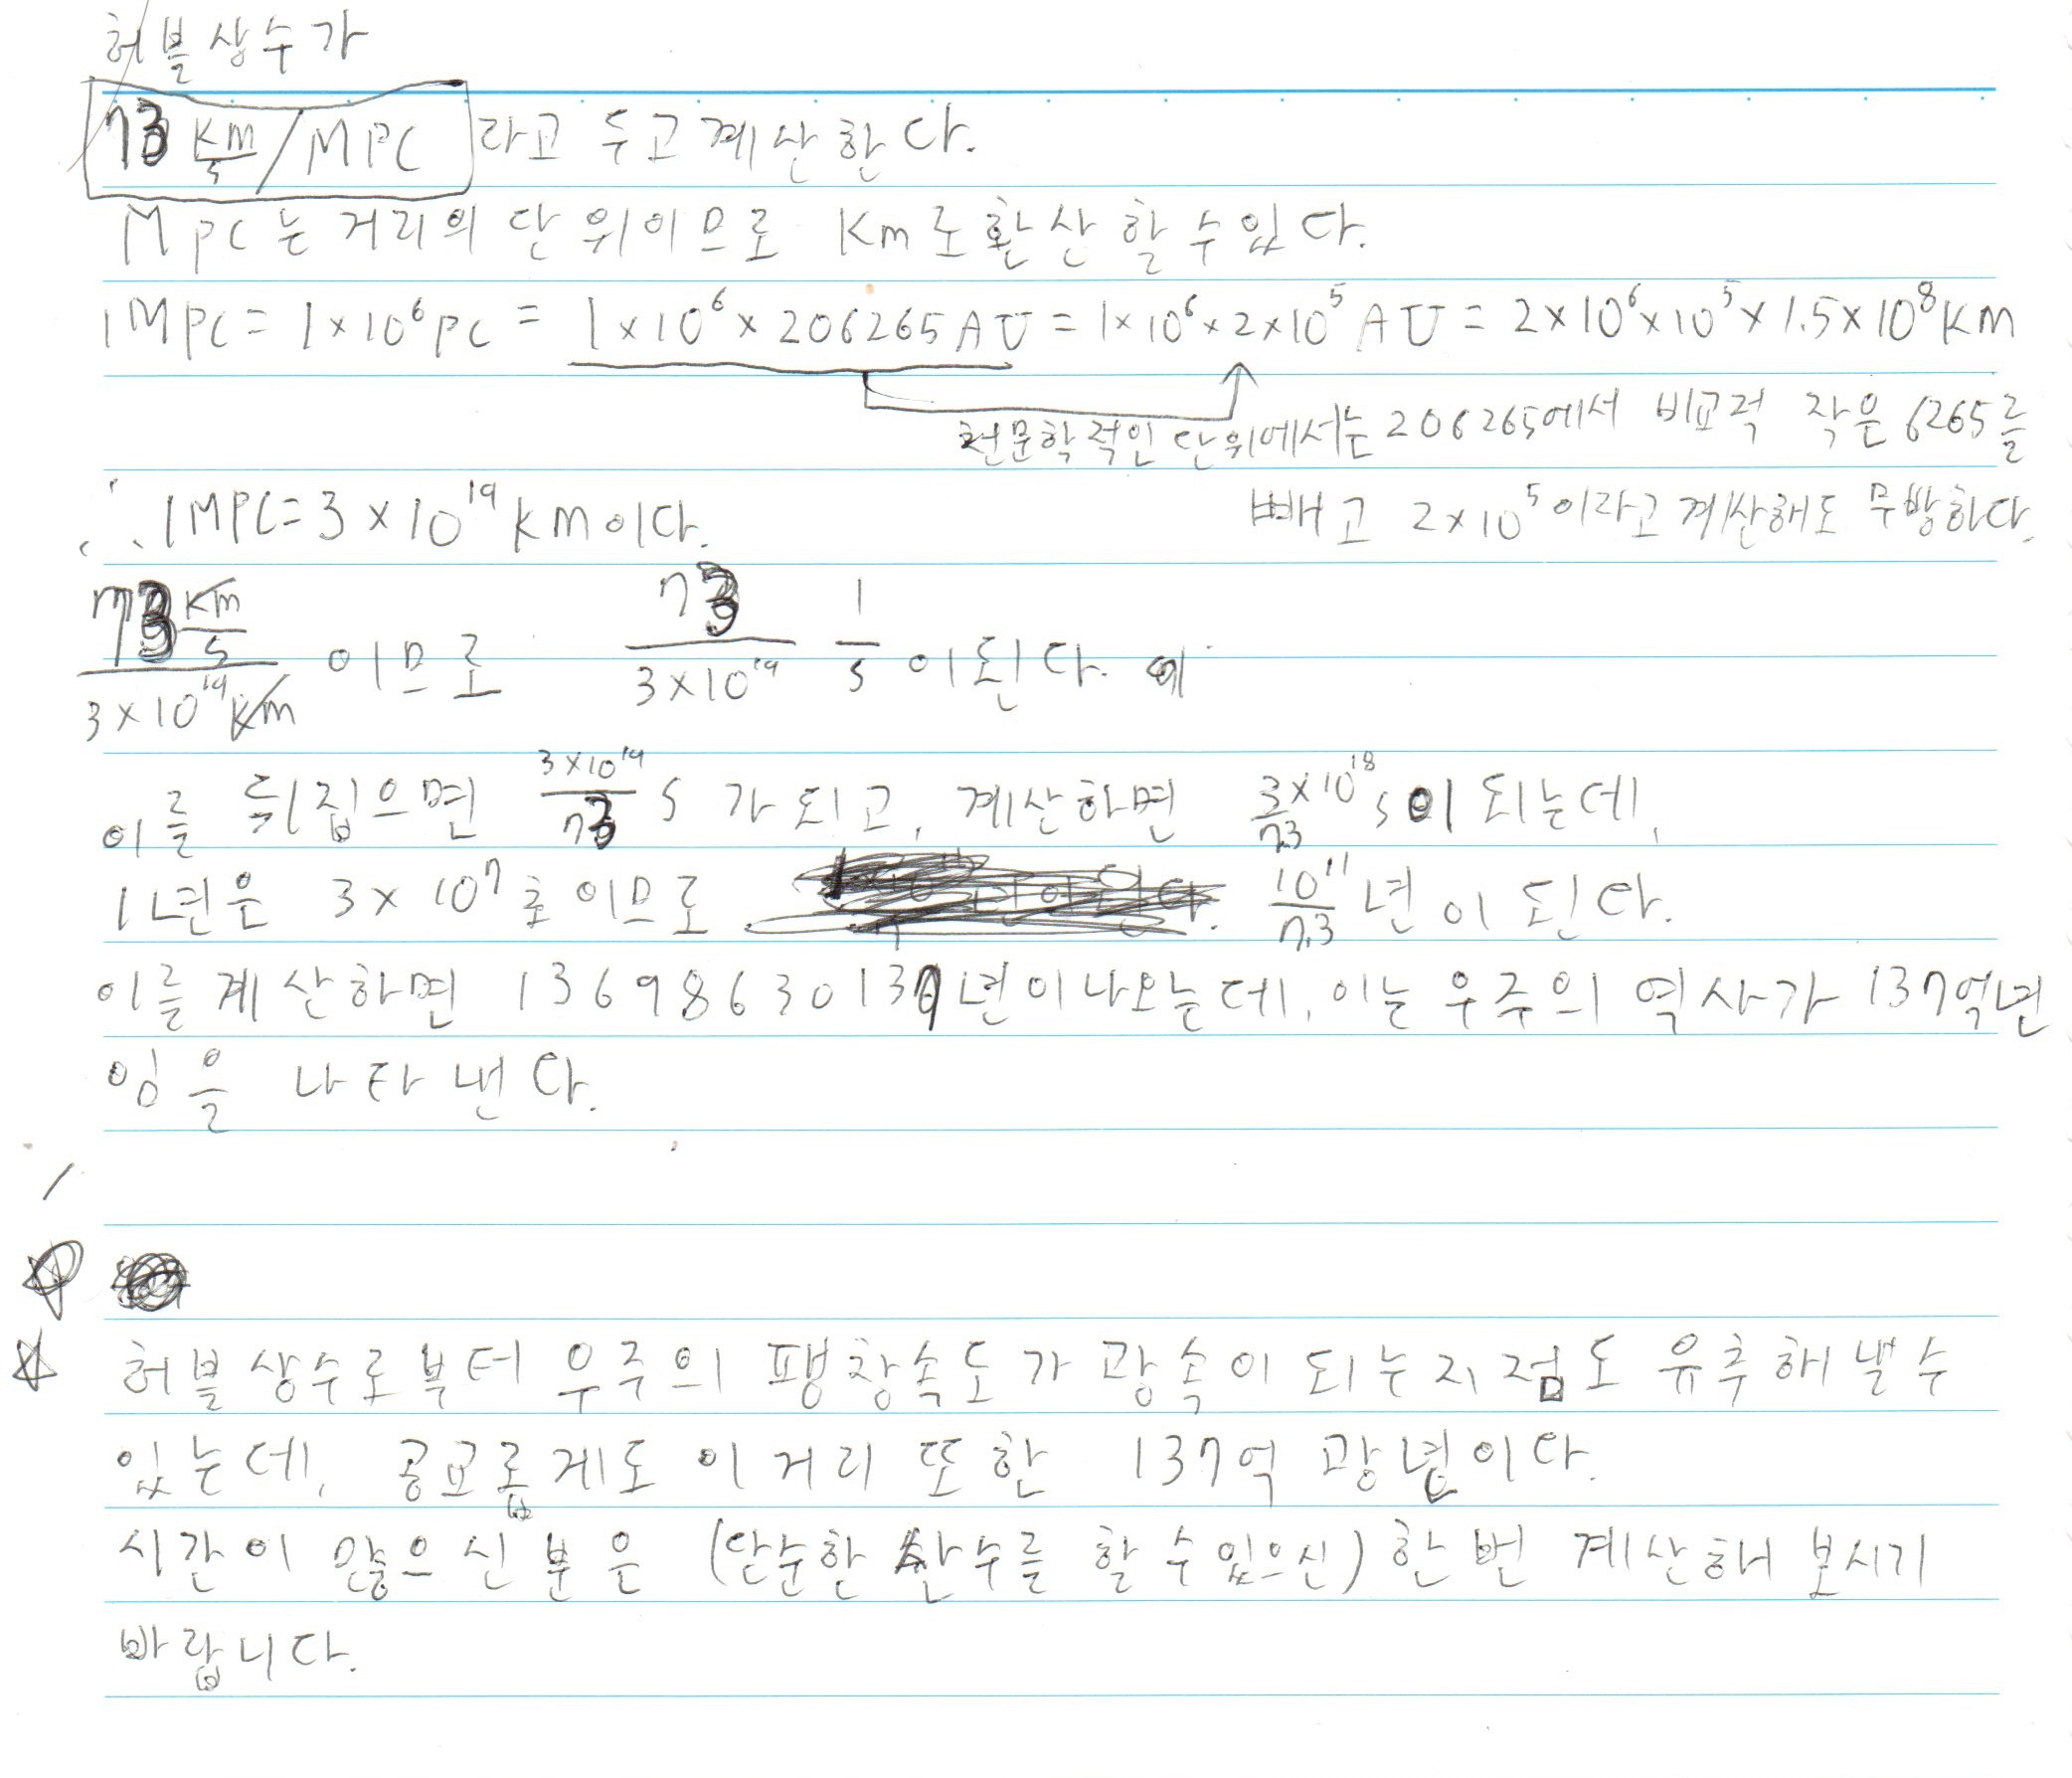 허블상수가
73 km/s / MPC 라고 두고 계산한다.
MPC는 거리의 단위이므로 Km로 환산할 수 있다.
1MPC = 1×10⁶PC = 1×10⁶×206265AU = 1×10⁶×2×10⁵AU = 2×10⁶×10⁵×1.5×10⁸KM
천문학적인 단위에서는 206265에서 비교적 작은 6265를
빼고 2×10⁵이라고 계산해도 무방하다.
∴ 1MPC = 3×10¹⁹KM이다.
73 km/s / 3×10¹⁹km 이므로 73 / 3×10¹⁹ 1/s 이 된다.
이를 뒤집으면 3×10¹⁹/73 s 가 되고, 계산하면 3×10¹⁸/7.3 s이 되는데,
1년은 3×10⁷초이므로 10¹¹/7.3 년이 된다.
이를 계산하면 13698630137년이 나오는데, 이는 우주의 역사가 137억년
임을 나타낸다.
허블상수로부터 우주의 팽창속도가 광속이 되는 지점도 유추해낼 수
있는데, 공교롭게도 이 거리 또한 137억 광년이다.
시간이 많으신 분은 (단순한 산수를 할 수 있으신) 한번 계산해 보시기
바랍니다.